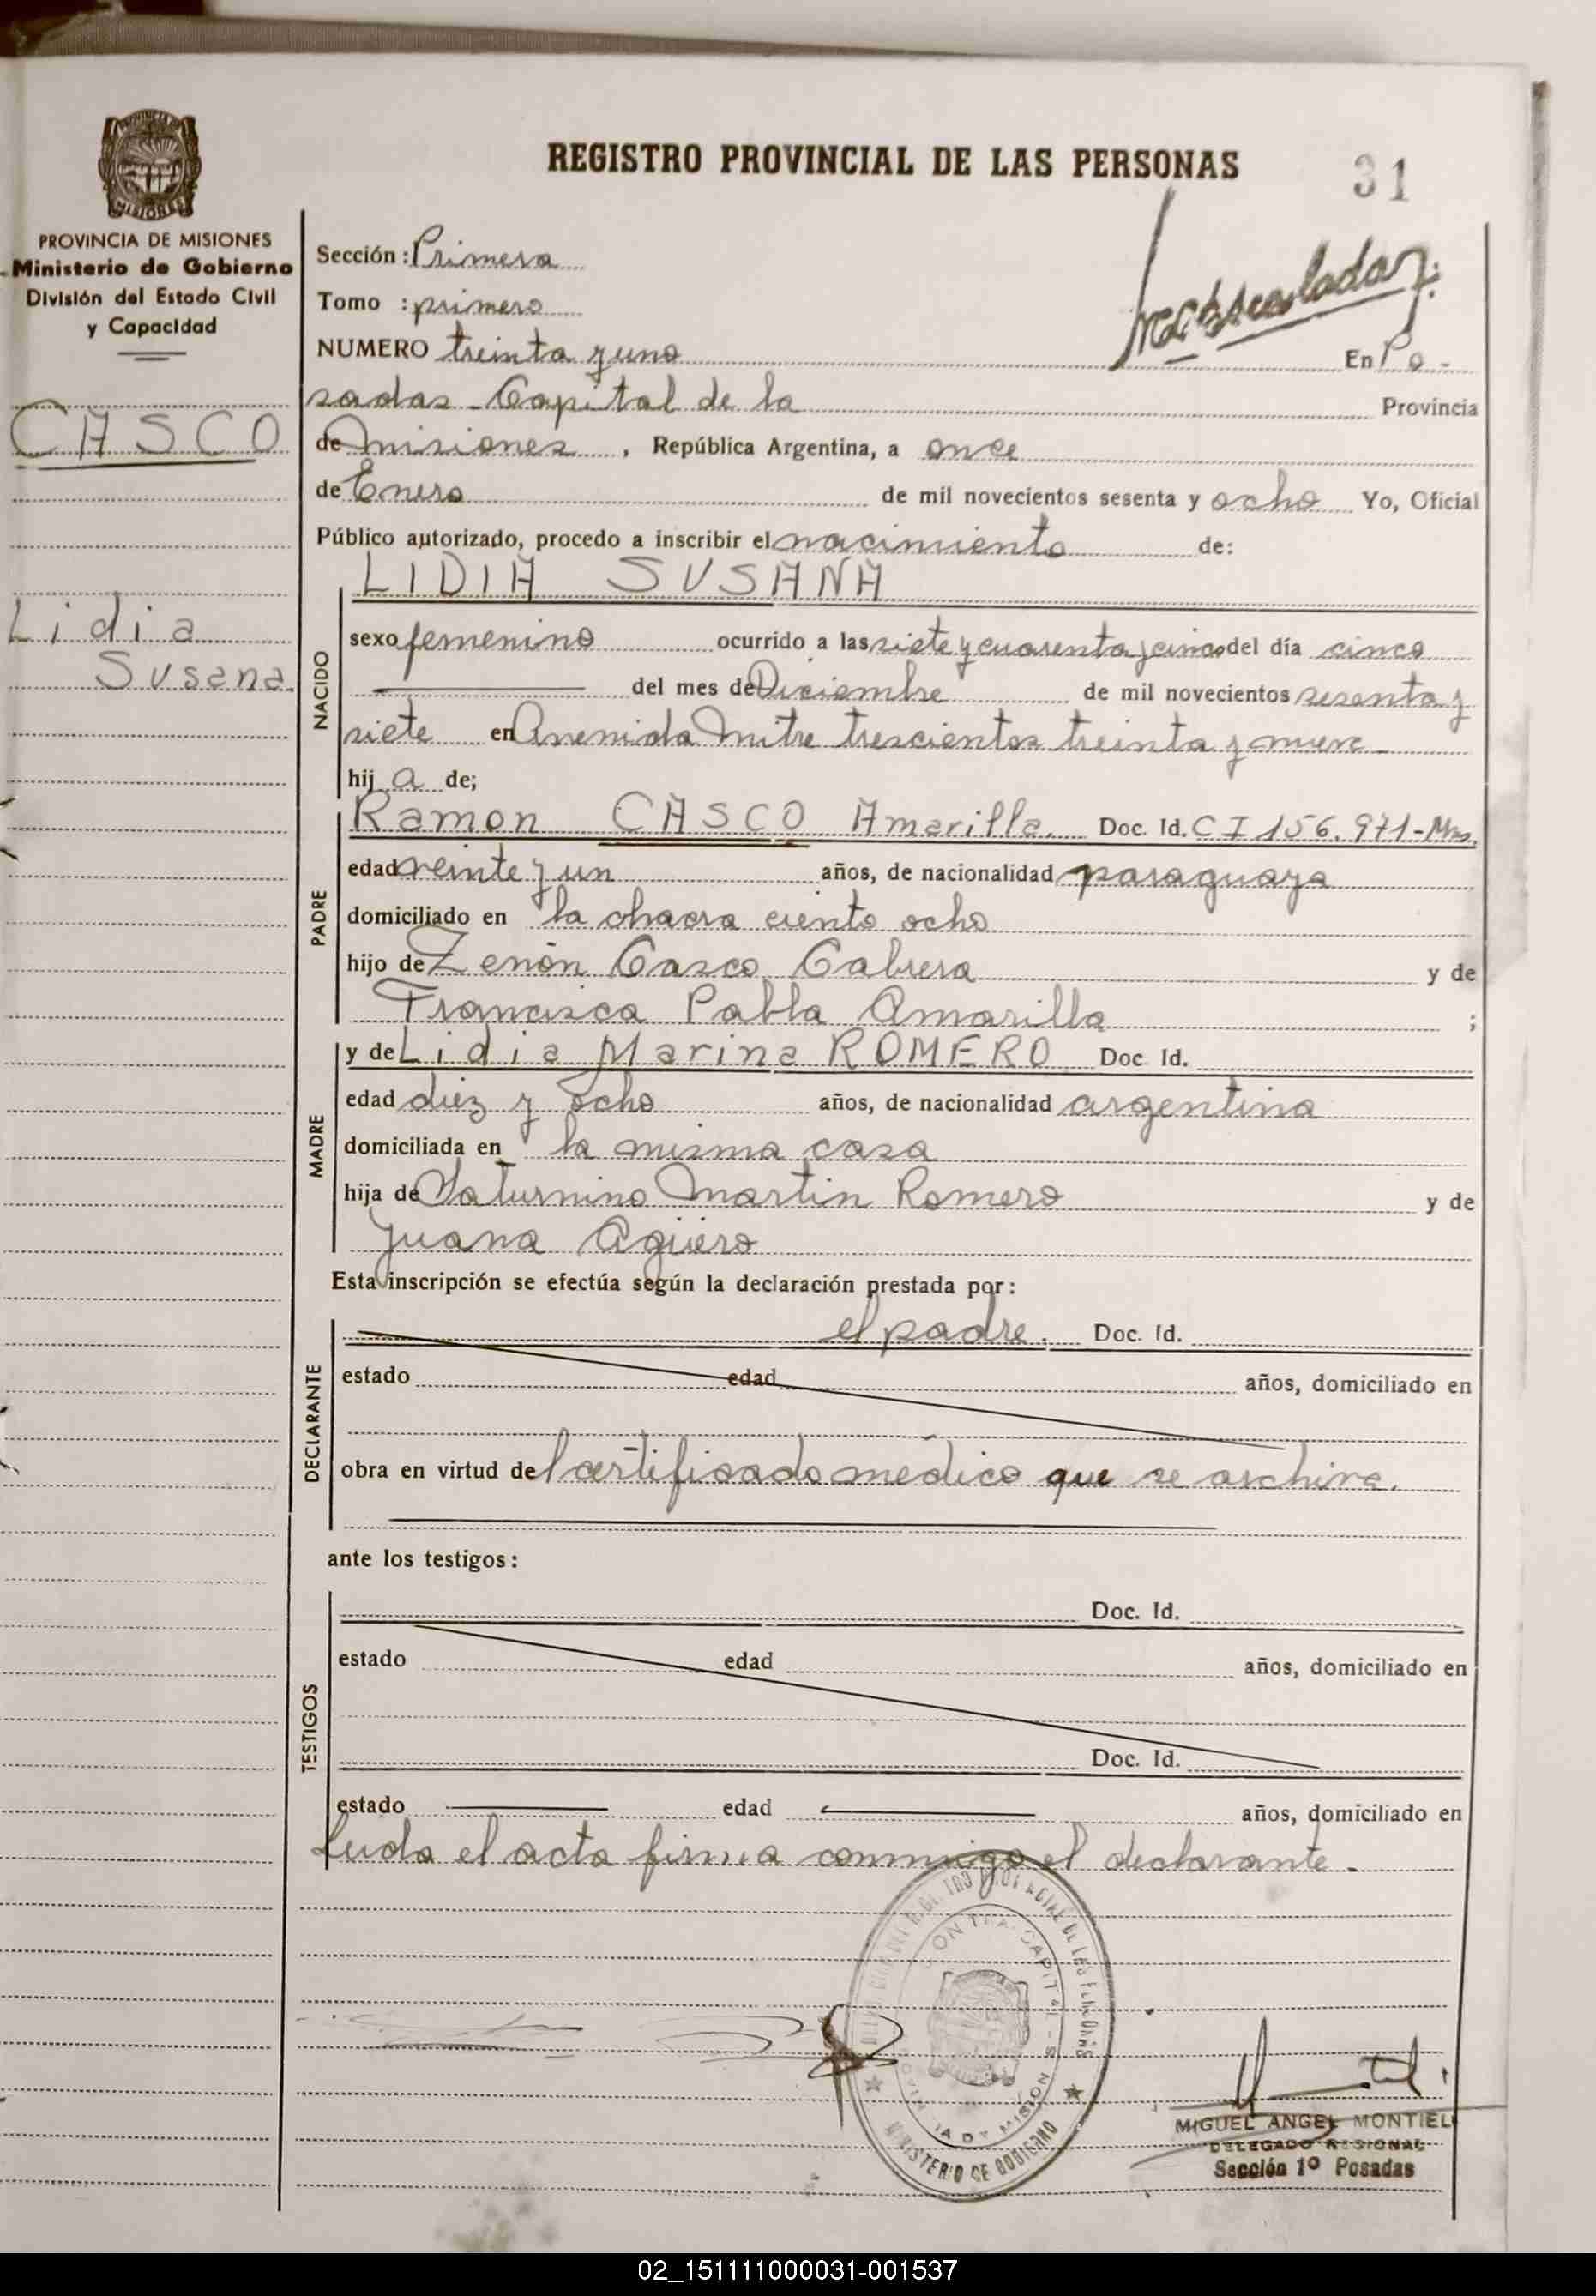 REGISTRO PROVINCIAL DE LAS PERSONAS
31
PROVINCIA DE MISIONES
Ministerio de Gobierno
División del Estado Civil
y Capacidad
CASCO
Lidia
Susana
Sección: Primera
Tomo : primero
NUMERO treinta y uno En Po-
sadas Capital de la Provincia
de Misiones, República Argentina, a once
de Enero de mil novecientos sesenta y ocho Yo, Oficial
Público autorizado, procedo a inscribir el nacimiento de:
LIDIA SUSANA
NACIDO
sexo femenino ocurrido a las siete y cuarenta y cinco del día cinco
del mes de Diciembre de mil novecientos sesenta y
siete en Avenida Mitre trescientos treinta y nueve
hij a de;
PADRE
Ramon CASCO Amarilla. Doc. Id. C I 156.971-Mns.
edad veinte y un años, de nacionalidad paraguaya
domiciliado en la chacra ciento ocho
hijo de Zenón Casco Cabrera y de
Francisca Pabla Amarilla ;
MADRE
y de Lidia Marina ROMERO Doc Id.
edad diez y ocho años, de nacionalidad argentina
domiciliada en la misma casa
hija de Saturnino Martin Romero y de
Juana Agüero
Esta inscripción se efectúa según la declaración prestada por:
DECLARANTE
el padre. Doc. Id.
estado edad años, domiciliado en
obra en virtud del certificado médico que se archiva.
ante los testigos:
TESTIGOS
Doc. Id.
estado edad años, domiciliado en
Doc. Id.
estado edad años, domiciliado en
Leida el acta firma conmigo el declarante.
CAPITAL
MINISTERIO DE GOBIERNO
MIGUEL ANGEL MONTIEL
DELEGADO REGIONAL
Sección 1º Posadas
02_151111000031-001537